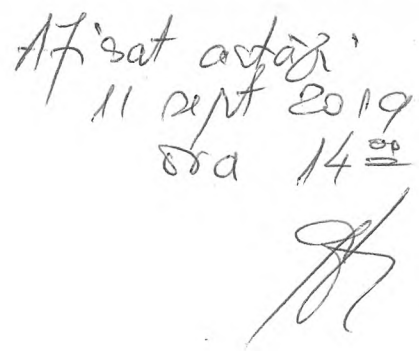 Afisat astăzi
11 sept 2019
ora 14 00